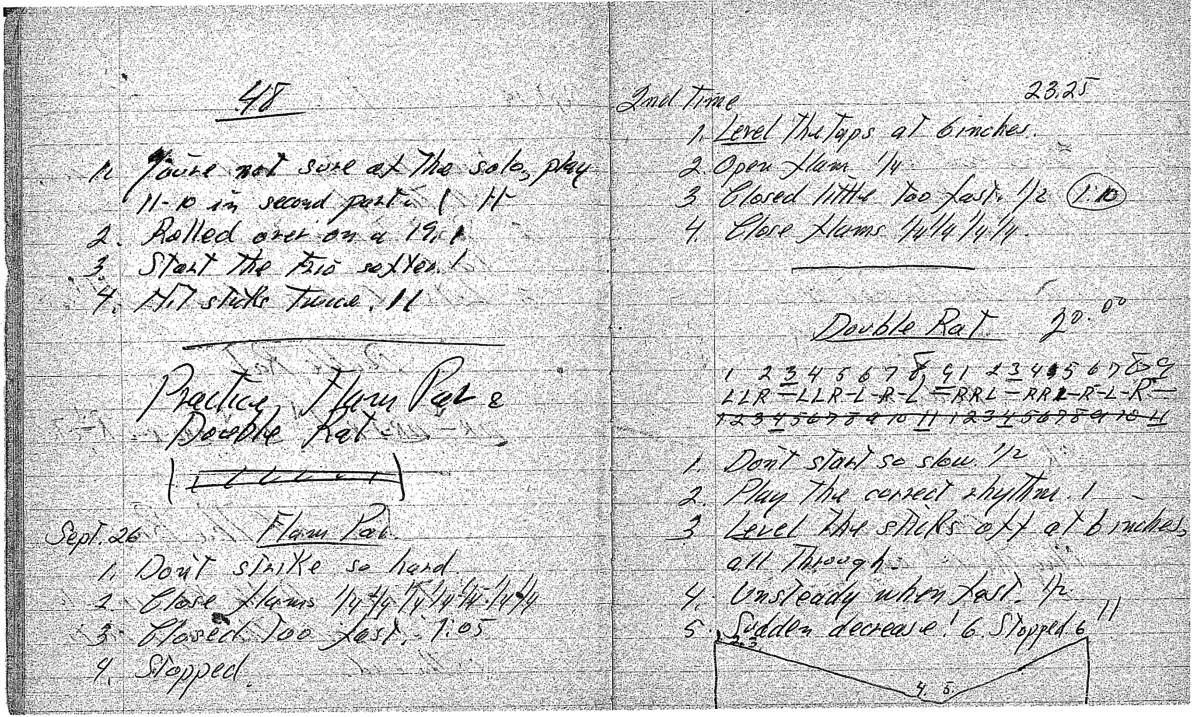 48
1. You're not sure of the solo, play
11-10 in second part. 1 H
2. Rolled over on a 19. 1
3. Start the trio softer. 1
4. Hit sticks twice. 11
Practice Flam Par &
Double Rat
Sept. 26 Flam Par.
1. Don't strike so hard
2. Close flams 1/4 1/4 1/4 1/4 1/4 1/4 1/4
3. Closed too fast. 1:05
4. Stopped.
2nd Time 23.25
1. Level the taps at 6 inches.
2. Open flam 1/4
3 Closed little too fast. 1/2 1:10
4. Close flams 1/4 1/4 1/4 1/4.
Double Rat. 20.00
1 2 3 4 5 6 7 8 9 1 2 3 4 5 6 7 8 9
LLR-LLR-L-R-L-RRL-RRL-R-L-R-
1 2 3 4 5 6 7 8 9 10 11 1 2 3 4 5 6 7 8 9 10 11
1. Don't start so slow. 1/2
2. Play the correct rhythm. 1
3 Level the sticks off at 6 inches,
all through.
4. Unsteady when fast. 1/2
5. Sudden decrease! 6. Stopped. 6 11
2. 3.
4. 5.